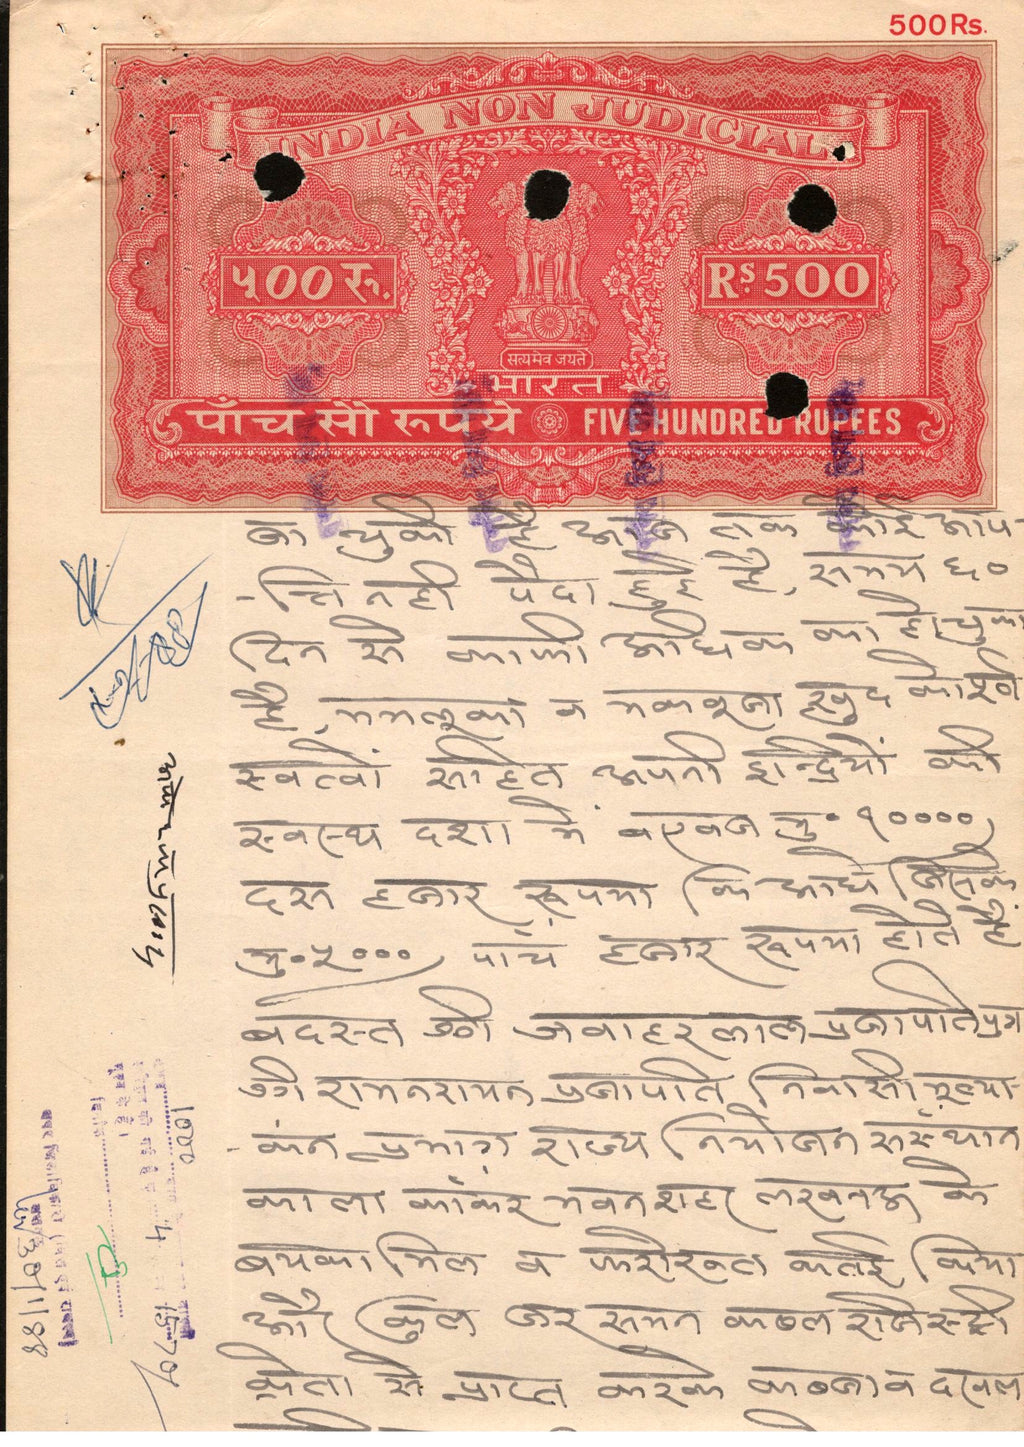 500 Rs.
INDIA NON JUDICIAL
५00 रु.
RS. 500
सत्यमेव जयते
भारत
पाँच सौ रूपये
FIVE HUNDRED RUPEES
का चुकी है आज तक कोई आप-
-त्ति नही पैदा हुई है, समय ६०
दिन से काफी अधिक का हो चुका
है, ममलूका व मकबूजा खुद को
स्वत्वों सहित अपनी इन्द्रियों की
स्वस्थ दशा में बएवज मु० १००००)
दस हजार रूपया कि आधे जिसके
मु० ५०००) पाँच हजार रूपया होते हैं
बदस्त श्री जवाहरलाल प्रजापति पुत्र
श्री रामनरायन प्रजापति निवासी मूल्या-
-कंन प्रभाग राज्य नियोजन संस्थान
काला काँकर भवन शहर लखनऊ के
बयकामिल व फरोख्त कतई किया
और कुल जर समन कब्ल रजिस्ट्री
क्रेता से प्राप्त करके कब्जा व दखल
1000
30/1/88